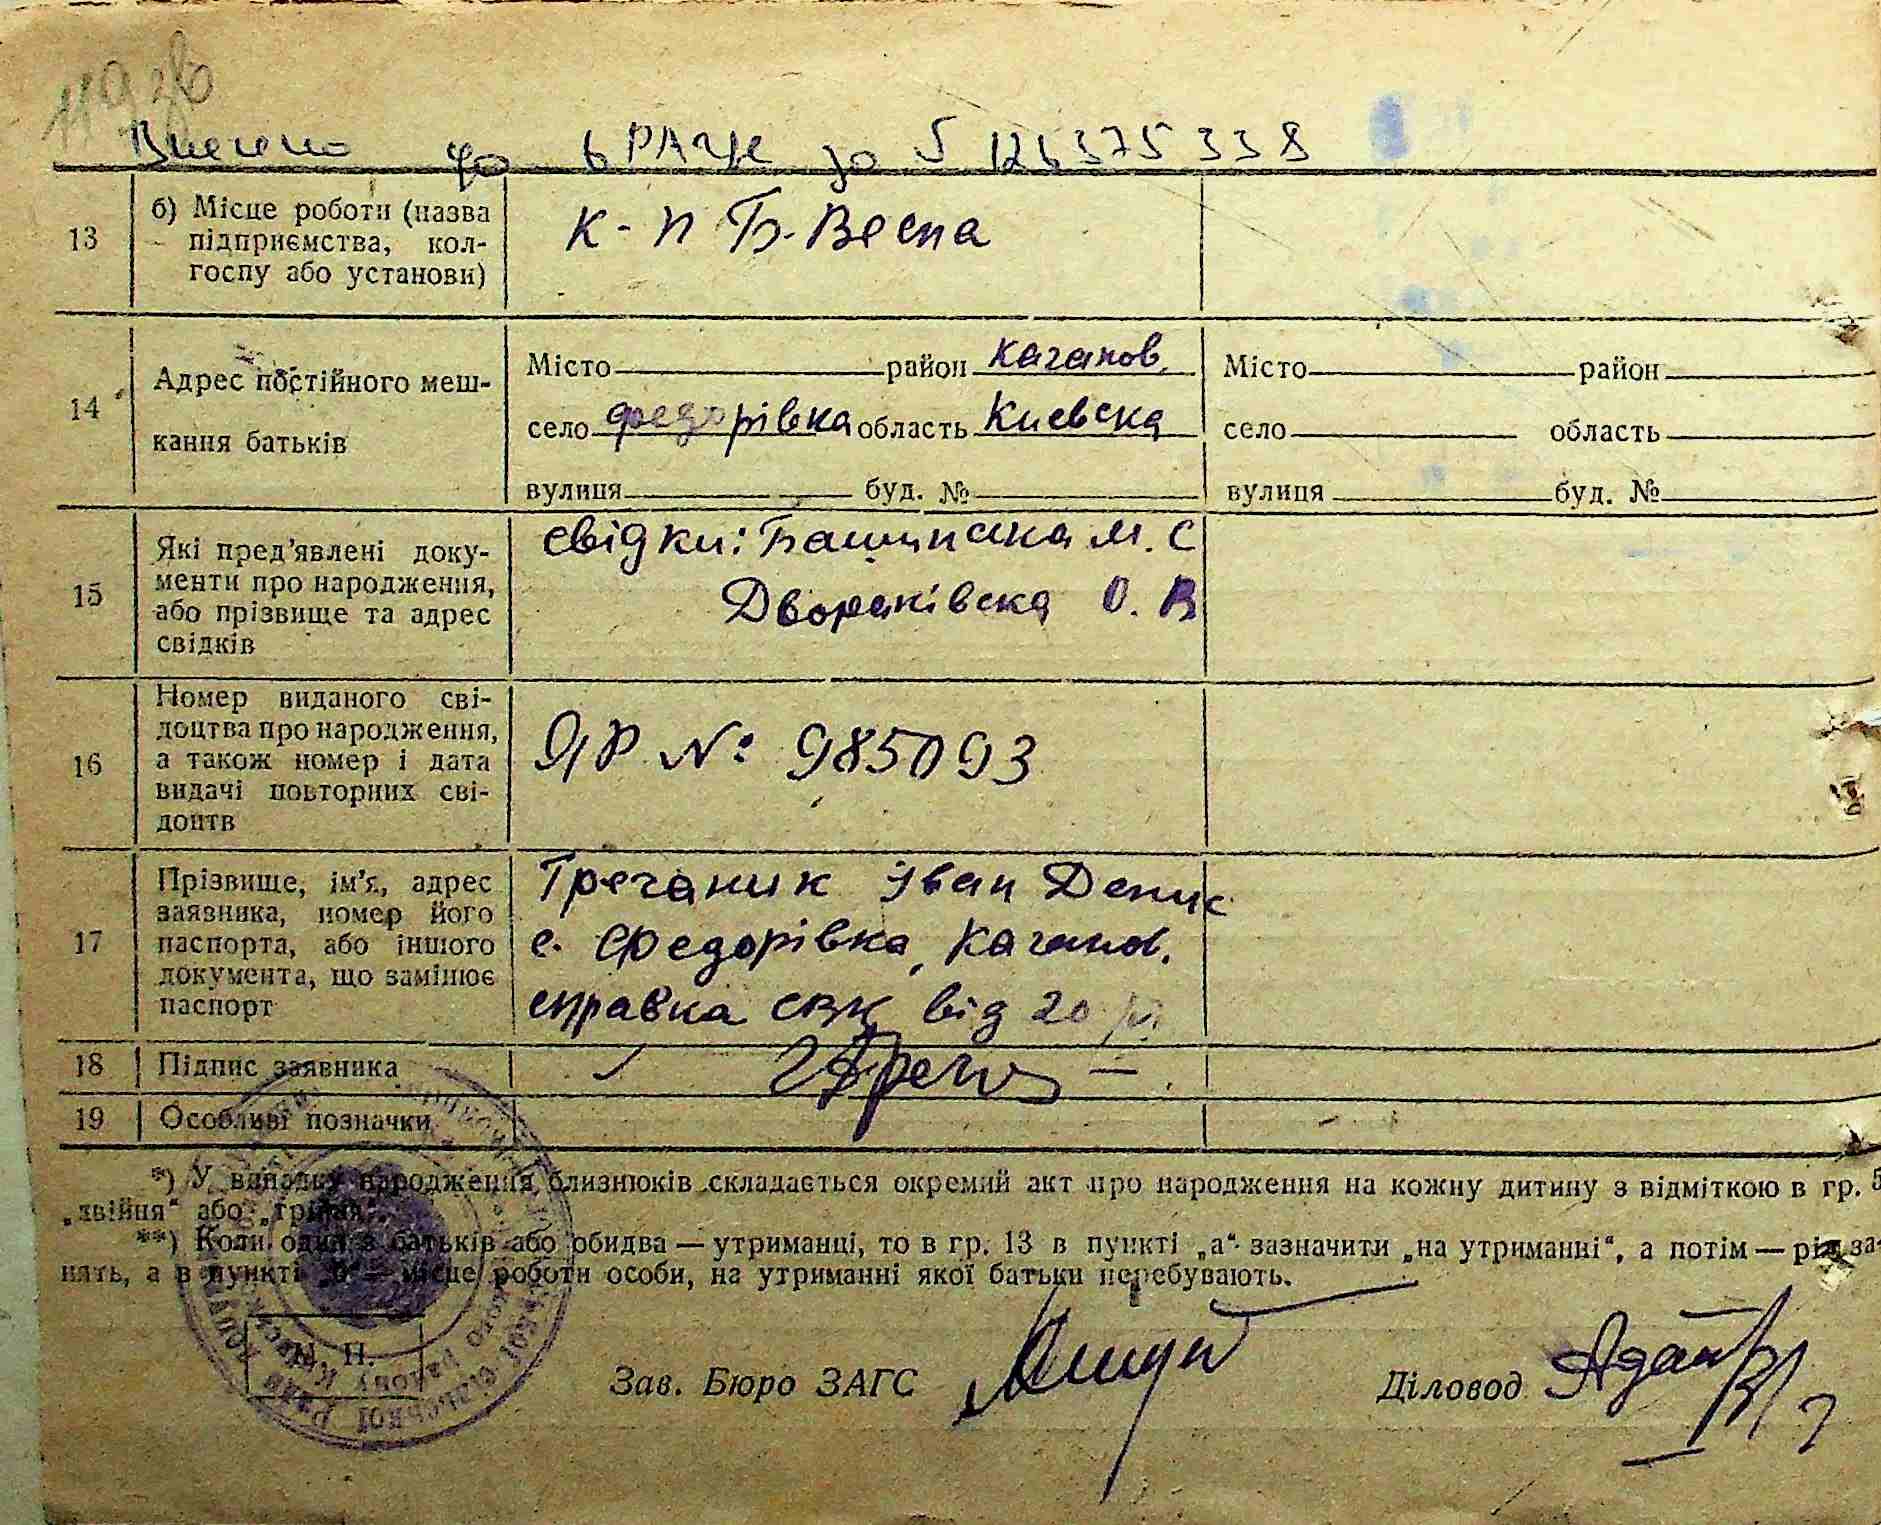 Внесено до ДРАЦС за № 126375338
13 б) Місце роботи (назва
підприємства, кол-
госпу або установи)
к-п Б-Весна
14 Адрес постійного меш-
кання батьків
Місто район Каганов.
село Федорівка область Киевска
вулиця буд. №
Місто район
село область
вулиця буд. №
15 Які пред’явлені доку-
менти про народження,
або прізвище та адрес
свідків
свідки: М. С
Двораківска О. В
16 Номер виданого сві-
доцтва про народження,
а також номер і дата
видачі повторних сві-
доцтв
ЯР № 985093
17 Прізвище, ім’я, адрес
заявника, номер його
паспорта, або іншого
документа, що замінює
паспорт
Гречаник Іван Денис
с. Федорівка, Каганов.
справка від 20
18 Підпис заявника
19 Особливі позначки
*) У випадку народження близнюків складається окремий акт про народження на кожну дитину з відміткою в гр. 5
„двійня“ або „трійня“.
**) Коли один з батьків або обидва — утриманці, то в гр. 13 в пункті „а“ зазначити „на утриманні“, а потім — рід за-
нять, а в пункті „б“ — місце роботи особи, на утриманні якої батьки перебувають.
М. П.
Зав. Бюро ЗАГС
Діловод